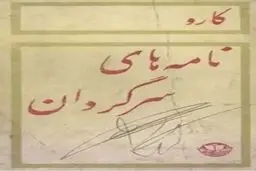 کارو
نامه های
سرگردان